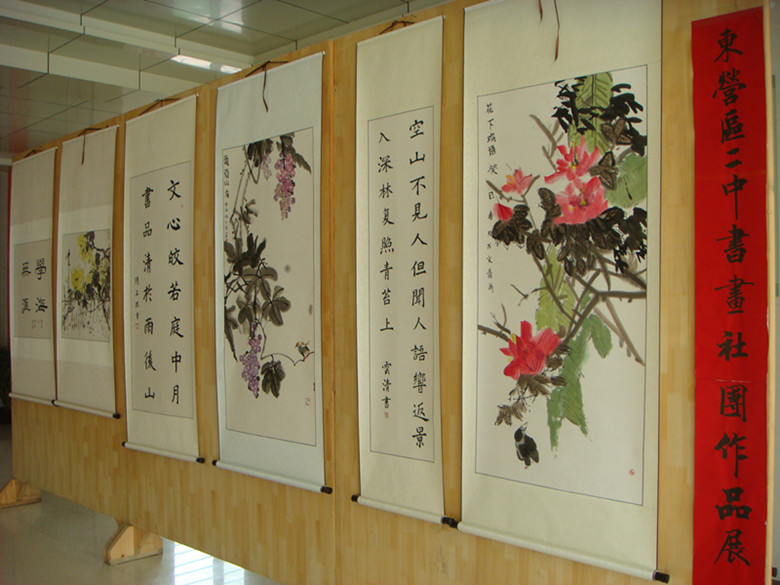 東營區二中書畫社團作品展
花下
癸巳
空山不見人但聞人語響返景
入深林复照青苔上
雲清書
文心皎若庭中月
書品清於雨後山
學海
無涯